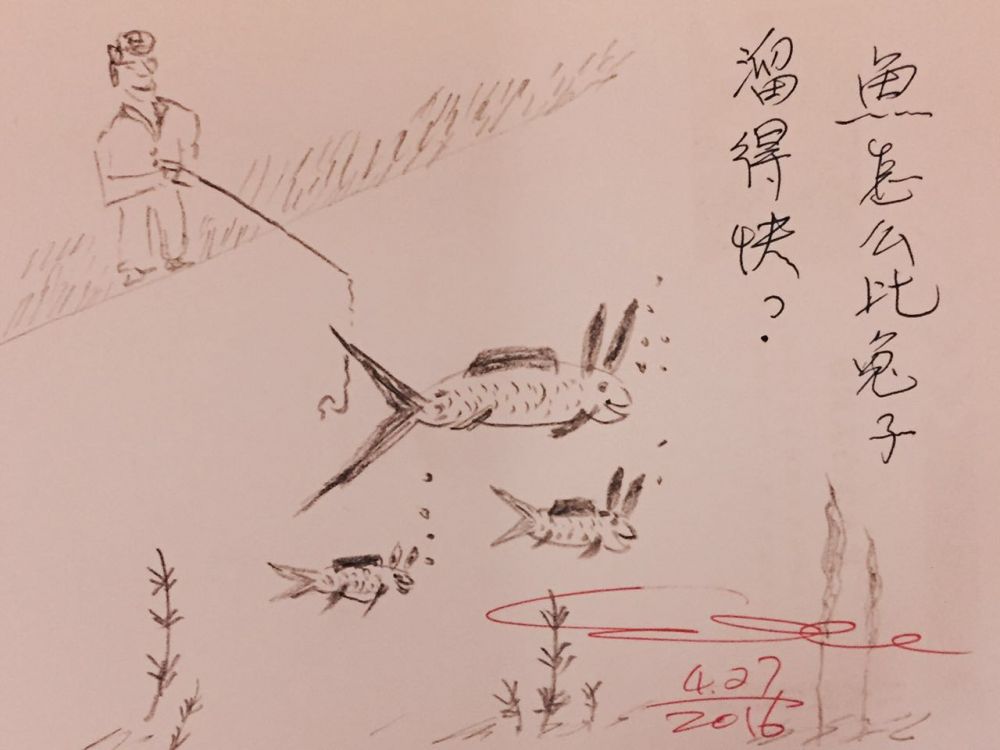 魚怎么比兔子
溜得快？
4.27
2016